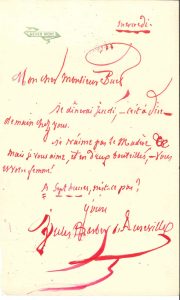 NEVER MORE
mercredi.
Mon cher Monsieur Buet
Je dînerai jeudi – c'est à dire
demain chez vous.
Je n'aime pas le Madère
Mais je vous aime, et en deux bouteilles, – Vous
et votre femme!
A Sept heures, n'est-ce pas?
Yours
Jules Barbey d'Aurevilly